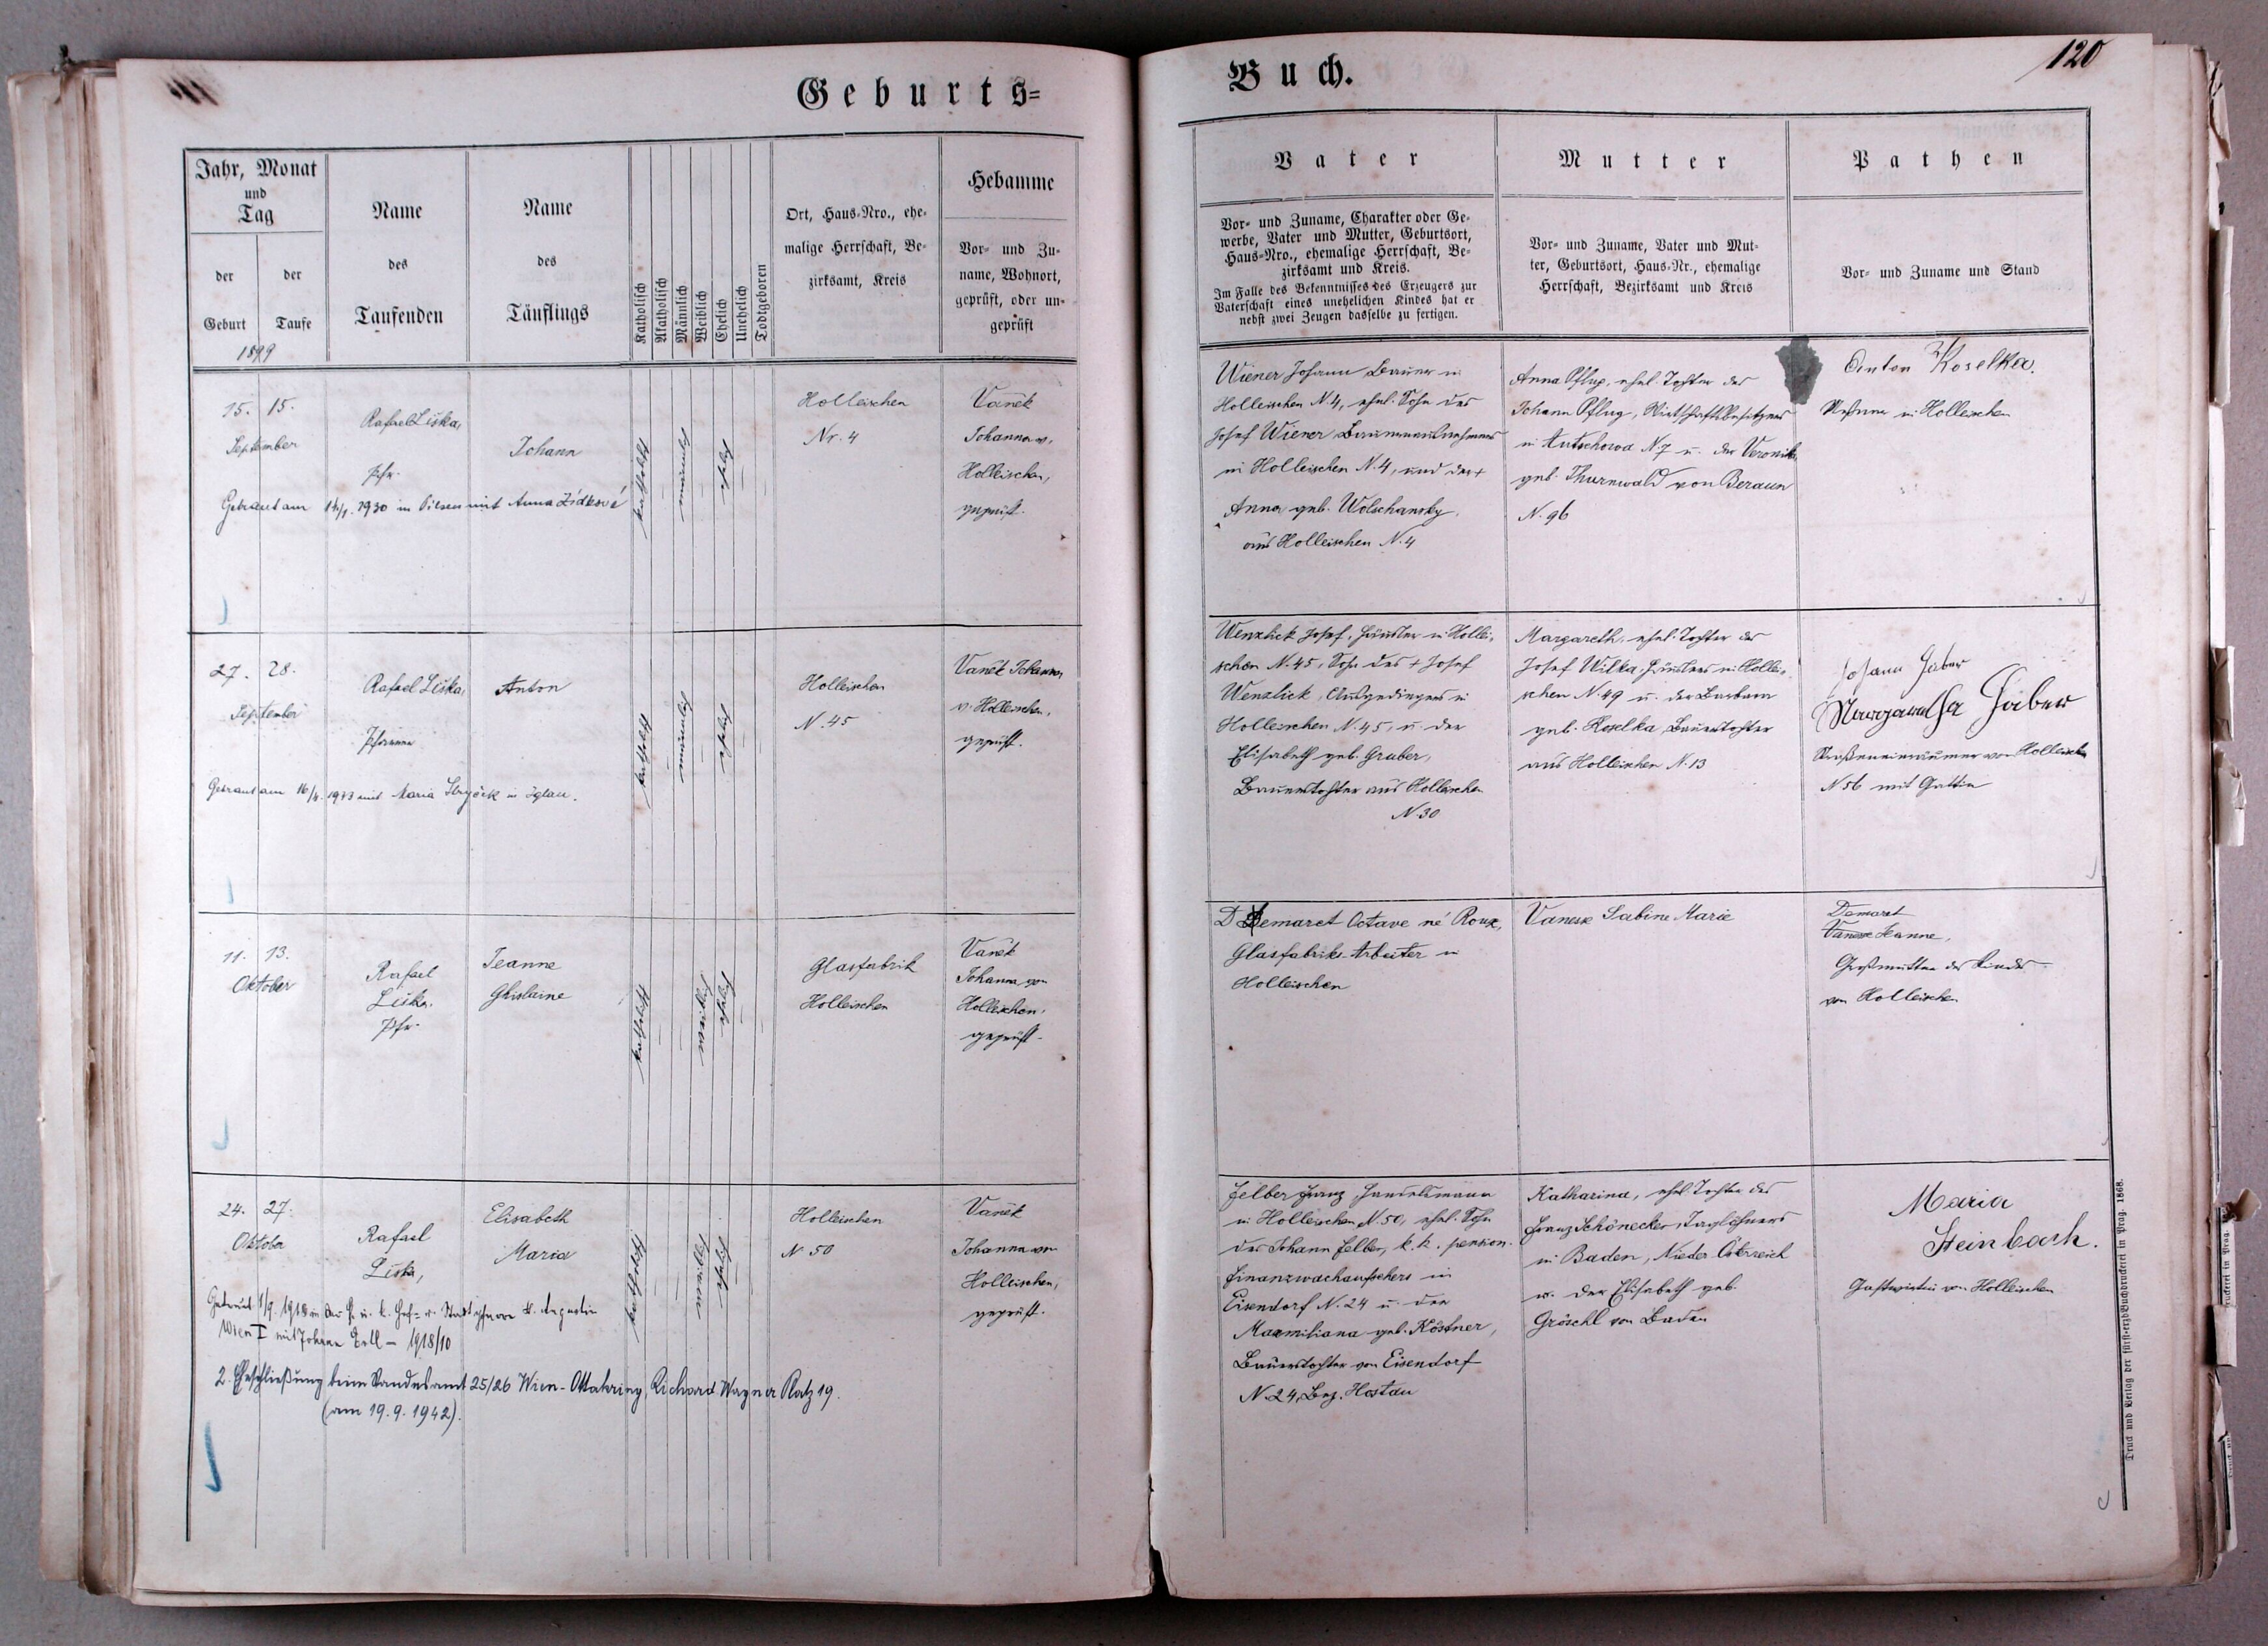 Geburts=
Buch.
120
Jahr, Monat
und
Tag
der
Geburt
der
Taufe
1899
Name
des
Taufenden
Name
des
Täuflings
Katholisch
Akatholisch
Männlich
Weiblich
Ehelich
Unehelich
Todtgeboren
Ort, Haus-Nro., ehe-
malige Herrschaft, Be-
zirksamt, Kreis
Hebamme
Vor- und Zu-
name, Wohnort,
geprüft, oder un-
geprüft
Vater
Vor- und Zuname, Charakter oder Ge-
werbe, Vater und Mutter, Geburtsort,
Haus-Nro., ehemalige Herrschaft, Be-
zirksamt und Kreis.
Im Falle des Bekenntnisses des Erzeugers zur
Vaterschaft eines unehelichen Kindes hat er
nebst zwei Zeugen dasselbe zu fertigen.
Mutter
Vor- und Zuname, Vater und Mut-
ter, Geburtsort, Haus-Nr., ehemalige
Herrschaft, Bezirksamt und Kreis
Pathen
Vor- und Zuname und Stand
15. 15.
September
Rafael Liška,
Pfr.
Johann
katholisch
männlich
ehelich
Holleischen
Nr. 4
Vaněk
Johanna v.
Holleischen,
geprüft.
Getraut am 1930 in Pilsen mit Anna Zídková
Wiener Johann Bauer in
Holleischen N. 4, ehel. Sohn des
Josef Wiener
in Holleischen N. 4, und der +
Anna geb. Wolschansky
aus Holleischen N. 4
Anna Pflug, ehel. Tochter des
Johann Pflug, Wirtschaftsbesitzers
in Autschowa N. 7 u. der Veronika
geb. Thurnwald von Beraun
N. 96
Anton Koselka.
in Holleischen
27. 28.
September
Rafael Liška,
Pfarrer
Anton
katholisch
männlich
ehelich
Holleischen
N. 45
Vaněk Johanna
v. Holleischen,
geprüft.
Getraut am mit Maria in Iglau.
Wenzlick Josef, Häusler in Hollei-
schen N. 45, Sohn des + Josef
Wenzlick, Ausgedingers in
Holleischen N. 45, u. der
Elisabeth geb. Gruber,
Bauerstochter aus Holleischen
N. 30
Margareth, ehel. Tochter des
Josef Wilka, Häuslers in Hollei-
schen N. 49 u. der Barbara
geb. Koselka Bauerstochter
aus Holleischen N. 13
Johann Gaber
Margaretha Gaber
Straßeneinräumer von Holleischen
N 56 mit Gattin
11. 13.
Oktober
Rafael
Liška,
Pfr.
Jeanne
Ghislaine
katholisch
weiblich
ehelich
Glasfabrik
Holleischen
Vaněk
Johanna von
Holleischen,
geprüft.
Demaret Octave né Roux,
Glasfabriks-Arbeiter in
Holleischen
Vanesse Sabine Marie
Demaret
Vanesse Jeanne,
Großmutter des Kindes
von Holleischen
24. 27.
Oktober
Rafael
Liška,
Elisabeth
Maria
katholisch
weiblich
ehelich
Holleischen
N 50
Vaněk
Johanna von
Holleischen,
geprüft.
Getraut 1/9. 1918 in der k. u. k. Hof- u. Stadtpfarre St. Augustin
Wien I mit Johann
2. Eheschließung beim Standesamt 25/26 Wien-Ottakring, Richard Wagner Platz 19.
(am 19. 9. 1942).
Felber Franz Handelsmann
in Holleischen N. 50, ehel. Sohn
des Johann Felber, k. k. pension.
Finanzwachaufsehers in
Eisendorf N. 24 u. der
Maxmiliana geb. Köstner,
Bauerstochter von Eisendorf
N. 24, Bez. Hostau
Katharina, ehel. Tochter des
Franz Schönecker, Taglöhners
in Baden, Nieder Österreich
u. der Elisabeth geb.
Gröschl von Baden
Maria
Steinbach.
Gastwirtin von Holleischen
Druck und Verlag der fürst-erzb Buchdruckerei in Prag. 1868.